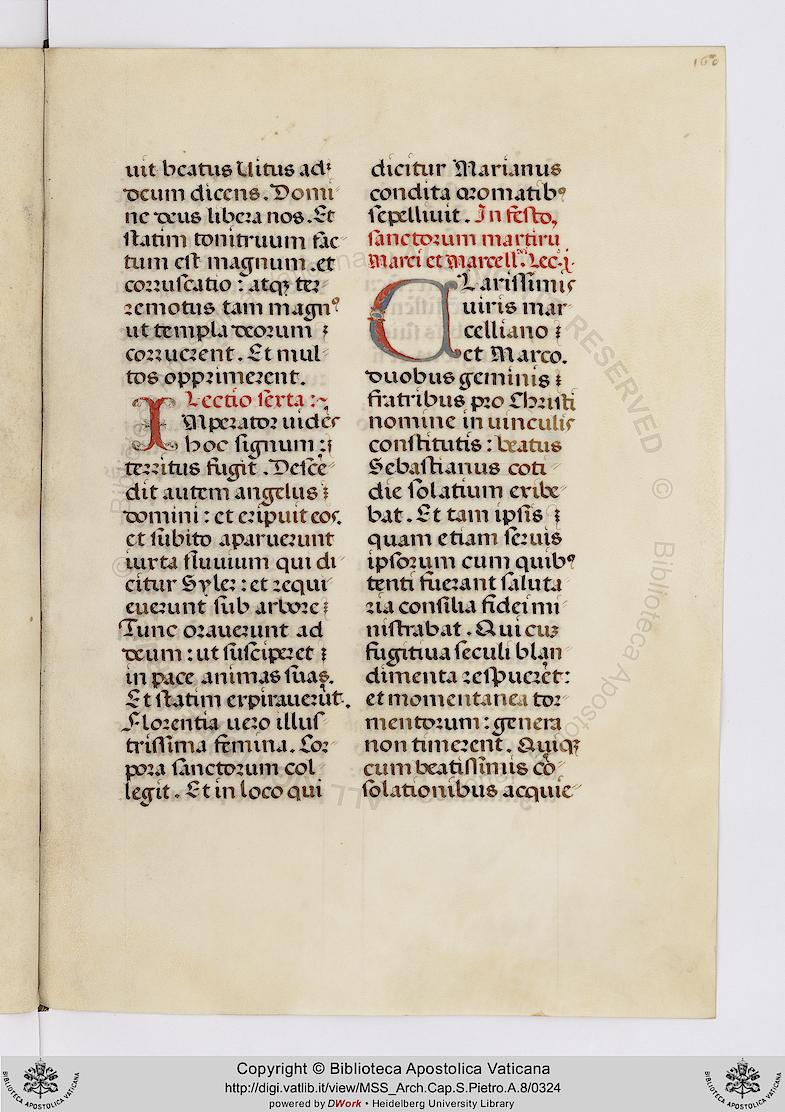 160
uit beatus Uitus ad
deum dicens. Domi
ne deus libera nos. Et
statim tonitruum fac
tum est magnum. et
corruscatio: atqꝫ ter
remotus tam magnꝰ
ut templa deorum
corruerent. Et mul
tos opprimerent.
Lectio sexta:
IMperator uidēs
hoc signum:
territus fugit. Descē
dit autem angelus
domini: et eripuit eos.
et subito aparuerunt
iuxta fluuium qui di
citur Syler: et requi
euerunt sub arbore:
Tunc orauerunt ad
deum: ut susciperet
in pace animas suas.
Et statim expirauerūt.
Florentia uero illus
trissima femina. Cor
pora sanctorum col
legit. Et in loco qui
dicitur Marianus
condita aromatibꝰ
sepelliuit. In festo,
sanctorum martirū
Marci et Marcell. Lec. j.
CLarissimis
uiris mar
celliano
et Marco.
duobus geminis
fratribus pro Christi
nomine in uinculis
constitutis: beatus
Sebastianus coti
die solatium exibe
bat. Et tam ipsis
quam etiam seruis
ipsorum cum quibꝰ
tenti fuerant saluta
ria consilia fidei mi
nistrabat. Qui cuꝫ
fugitiua seculi blan
dimenta respueret:
et momentanea tor
mentorum: genera
non timerent. Quiqꝫ
cum beatissimis cō
solationibus acquie
Copyright © Biblioteca Apostolica Vaticana
http://digi.vatlib.it/view/MSS_Arch.Cap.S.Pietro.A.8/0324
powered by DWork • Heidelberg University Library
BIBLIOTECA APOSTOLICA VATICANA
BIBLIOTECA APOSTOLICA VATICANA